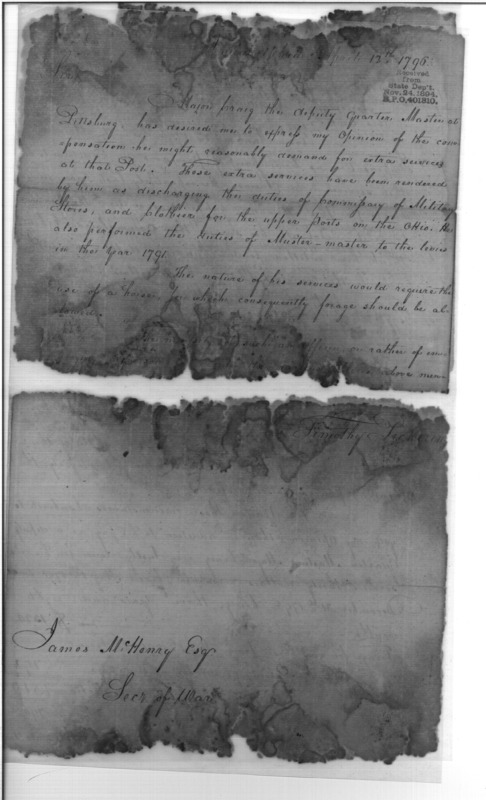 12th 1796.
Received
from
State Dep't.
Nov. 24. 1894.
R.P.O. 401310.
Sir,
Major Craig the deputy Quarter Master at
Pittsburg, has desired me to express my opinion of the com-
pensation he might reasonably demand for extra services
at that Post. These extra services have been rendered
by him as discharging the duties of Commissary of Military
Stores, and Clothier for the upper Posts on the Ohio. He
also performed the duties of Muster-master to the levies
in the Year 1791.
The nature of his services would require the
use of a horse, for which consequently forage should be al-
lowed.
rather of
above men-
Timothy
James McHenry Esqr
Secy of War